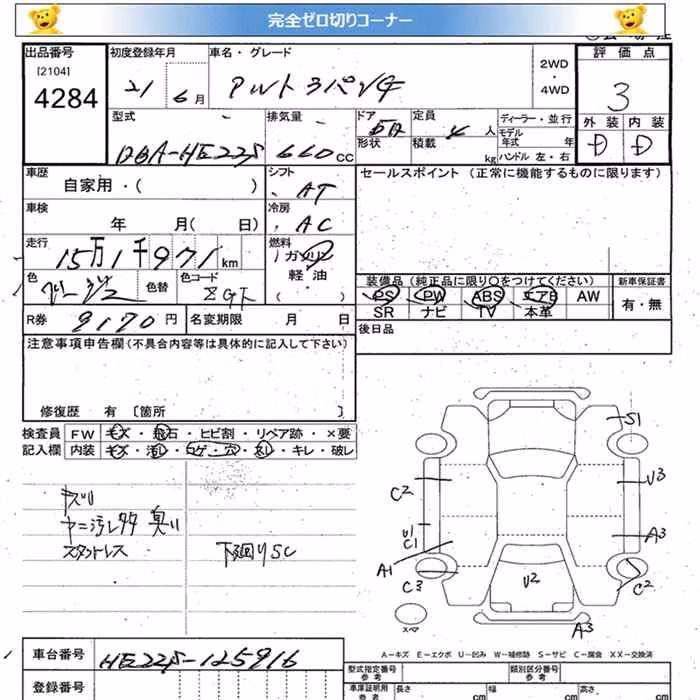 完全ゼロ切りコーナー
出品番号
[2104]
4284
初度登録年月
21 6月
車名・グレード
アルト 3バン4
2WD
・
4WD
評価点
3
外装 内装
D D
型式
DBA-HE22S
排気量
660CC
ドア
形状
5D
定員
積載
4人
kg
ディーラー・並行
モデル
年式 年
ハンドル 左・右
車歴
自家用・( )
シフト
AT
セールスポイント (正常に機能するものに限ります)
車検
年 月( 日)
冷房
AC
走行
15万1千971km
燃料
ガソリン
軽・油
( )
色
ベージュ
色替
色コード
ZGT
装備品 (純正品に限り○をつけてください)
PS PW ABS エアB AW
SR ナビ TV 本革
新車保証書
有・無
R券 9170円
名変期限 月 日
後日品
注意事項申告欄(不具合内容等は具体的に記入して下さい)
修復歴 有 〔箇所 〕
検査員 FW キズ・飛石・ヒビ割・リペア跡・×要
記入欄 内装 キズ・汚レ・コゲ・穴・スレ・キレ・破レ
キズU
ヤニ汚レ多々 臭い
スタットレス
下廻りSC
S1
C2
U3
U1
C1
A3
A1
C3
U2
C2
スペア
A3
A=キズ E=エクボ U=凹み W=補修跡 S=サビ C=腐食 XX=交換済
車台番号 HE22S-125916
登録番号
型式指定番号
参考
類別区分番号
参考
車庫証明用
参考
長さ
cm
幅
cm
高さ
cm